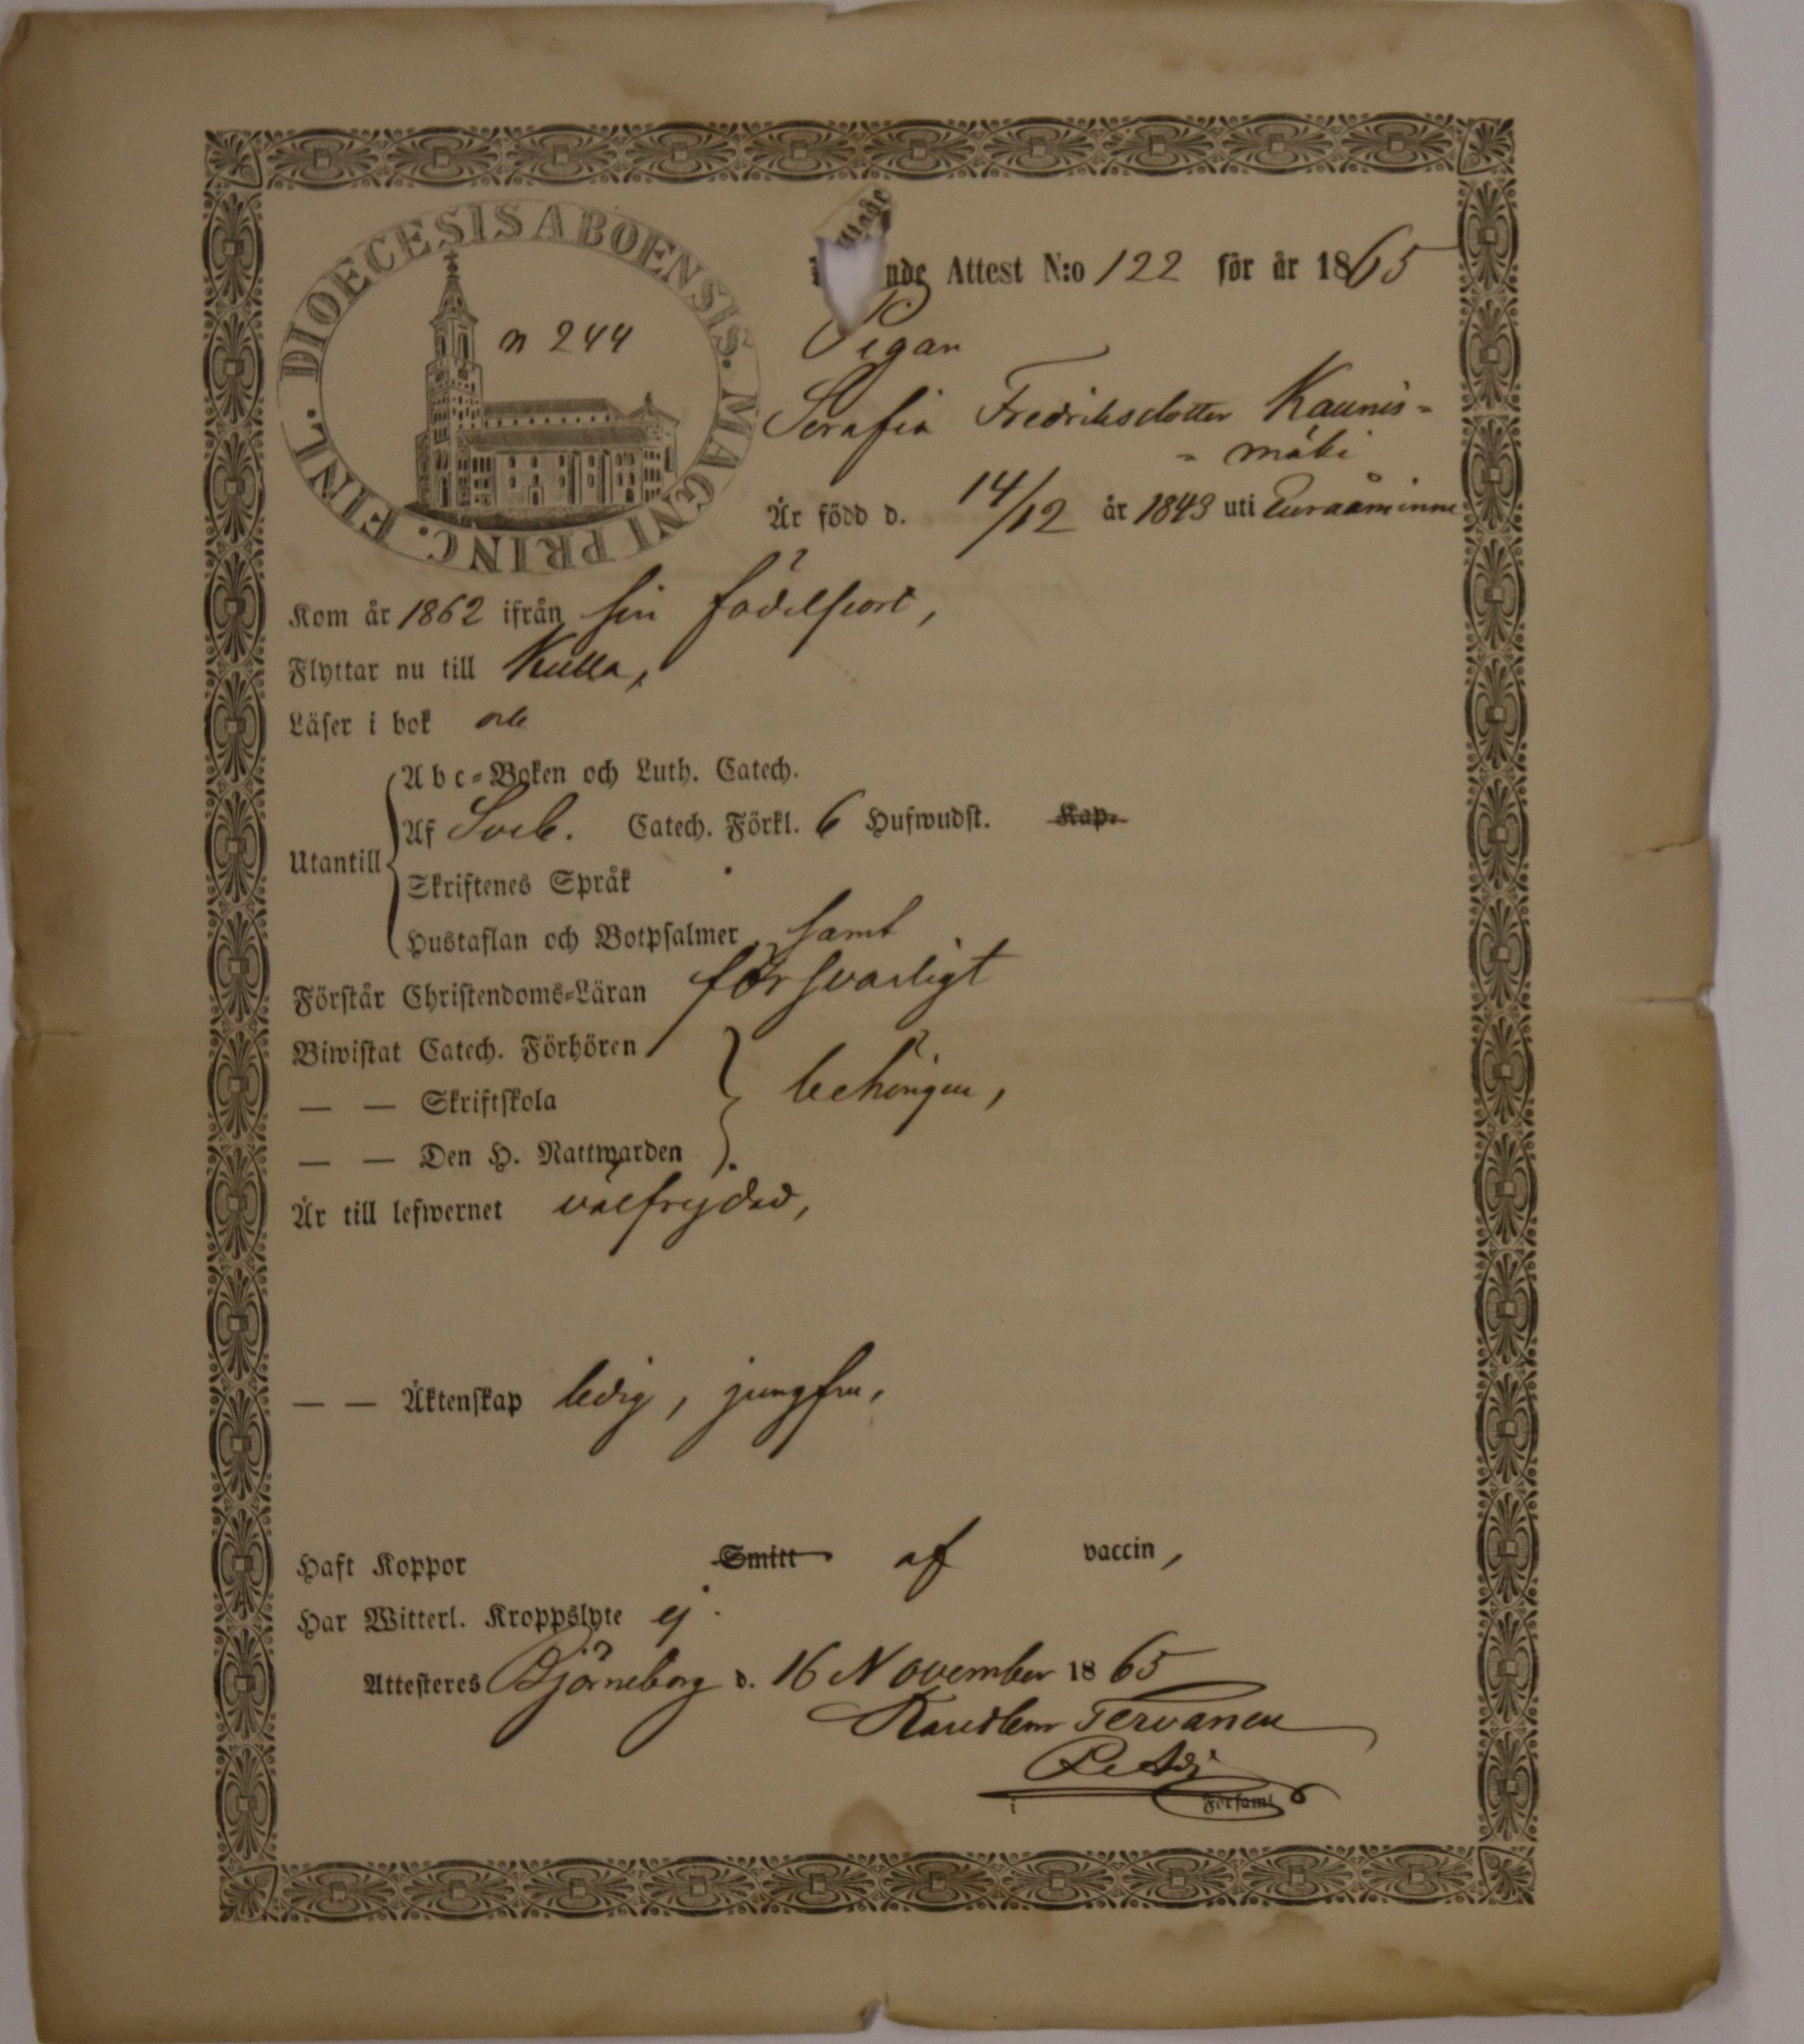 DIOECESIS ABOENSIS. MAGNI PRINC. FINL.
n 244
nde Attest N:o 122 för år 1865
Pigan
Serafia Fredriksdotter Kaunis=
= mäki
Är född d. 14/12 år 1843 uti Euraåminne
Kom år 1862 ifrån sin födelseort,
Flyttar nu till Kulla,
Läser i bok
Abc=Boken och Luth. Catech.
Af Sveb. Catech. Förkl. 6 Hufwudst. Kap.
Utantill
Skriftenes Språk
Hustaflan och Botpsalmer samt
Förstår Christendoms=Läran försvarligt
Biwistat Catech. Förhören
— — Skriftskola behörigen,
— — Den H. Nattwarden
Är till lefwernet välfrejdad,
— — Äktenskap ledig, jungfru,
Haft Koppor Smitt af vaccin,
Har Witterl. Kroppslyte ej.
Attesteres Björneborg d. 16 November 1865
Tervanen
i Församl